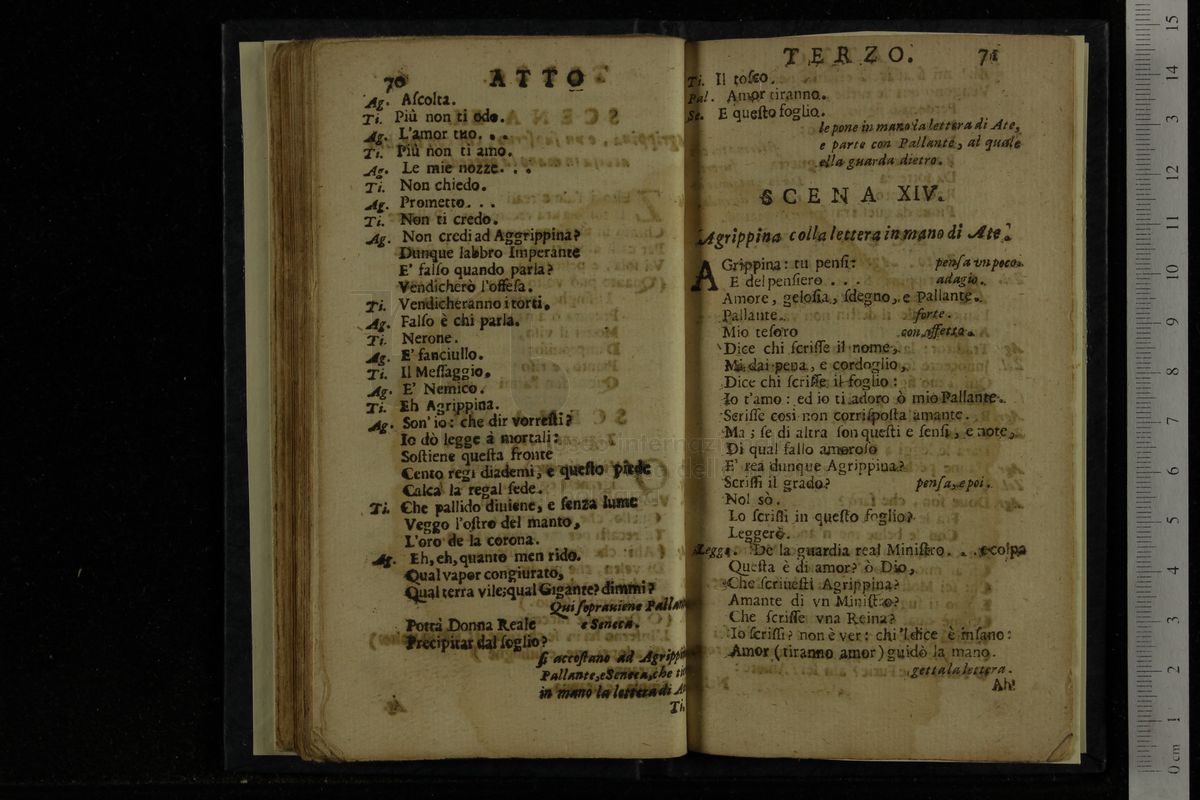 70 ATTO
Ag. Aſcolta.
Ti. Più non ti odo.
Ag. L'amor tuo. . .
Ti. Più non ti amo.
Ag. Le mie nozze. . .
Ti. Non chiedo.
Ag. Prometto. . .
Ti. Non ti credo.
Ag. Non credi ad Aggrippina?
Dunque labbro Imperante
E' falſo quando parla?
Vendicherò l'offeſa.
Ti. Vendicheranno i torti.
Ag. Falſo è chi parla.
Ti. Nerone.
Ag. E' fanciullo.
Ti. Il Meſſaggio.
Ag. E' Nemico.
Ti. Eh Agrippina.
Ag. Son' io: che dir vorreſti?
Io dò legge à mortali:
Soſtiene queſta fronte
Cento regi diademi, e queſto piede
Calca la regal ſede.
Ti. Che pallido diuiene, e ſenza lume
Veggo l'oſtro del manto,
L'oro de la corona.
Ag. Eh, eh, quanto men rido.
Qual vapor congiurato,
Qual terra vile; qual Gigante? dimmi?
Qui ſoprauiene Pallan
Potrà Donna Reale e Seneca.
Precipitar dal ſoglio?
ſi accoſtano ad Agrippin
Pallante, e Seneca, che ti
in mano la lettera di A
Ti.
TERZO. 71
Ti. Il toſco.
Pal. Amor tiranno.
Se. E queſto foglio.
le pone in mano la lettera di Ate,
e parte con Pallante, al quale
ella guarda dietro.
SCENA XIV.
Agrippina colla lettera in mano di Ate.
AGrippina: tu penſi: penſa vn poco.
E del penſiero . . . adagio.
Amore, geloſia, ſdegno, e Pallante.
Pallante. forte.
Mio teſoro con affetto.
Dice chi ſcriſſe il nome,
Mi dai pena, e cordoglio,
Dice chi ſcriſſe il foglio:
Io t'amo: ed io ti adoro ò mio Pallante.
Scriſſe così non corriſpoſta amante.
Ma; ſe di altra ſon queſti e ſenſi, e note,
Di qual fallo amoroſo
E' rea dunque Agrippina?
Scriſſi il grado? penſa, e poi.
Nol sò.
Lo ſcriſſi in queſto foglio?
Leggerò.
Legge. De la guardia real Miniſtro. . . e colpa
Queſta è di amor? ò Dio,
Che ſcriueſti Agrippina?
Amante di vn Miniſtro?
Che ſcriſſe vna Reina?
Io ſcriſſi? non è ver: chi 'l dice è inſano:
Amor (tiranno amor) guidò la mano.
getta la lettera.
Ah!